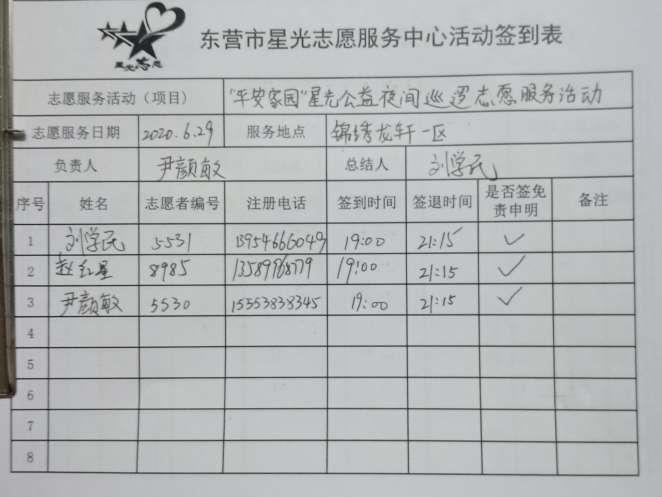 星光志愿
东营市星光志愿服务中心活动签到表
志愿服务活动（项目） "平安家园"星光公益夜间巡逻志愿服务活动
志愿服务日期 2020.6.29 服务地点 锦绣龙轩一区
负责人 尹颜敏 总结人 刘学民
序号 姓名 志愿者编号 注册电话 签到时间 签退时间 是否签免责申明 备注
1 刘学民 5531 13954666049 19:00 21:15 ✓
2 赵红星 8985 19:00 21:15 ✓
3 尹颜敏 5530 15553838345 19:00 21:15 ✓
4
5
6
7
8